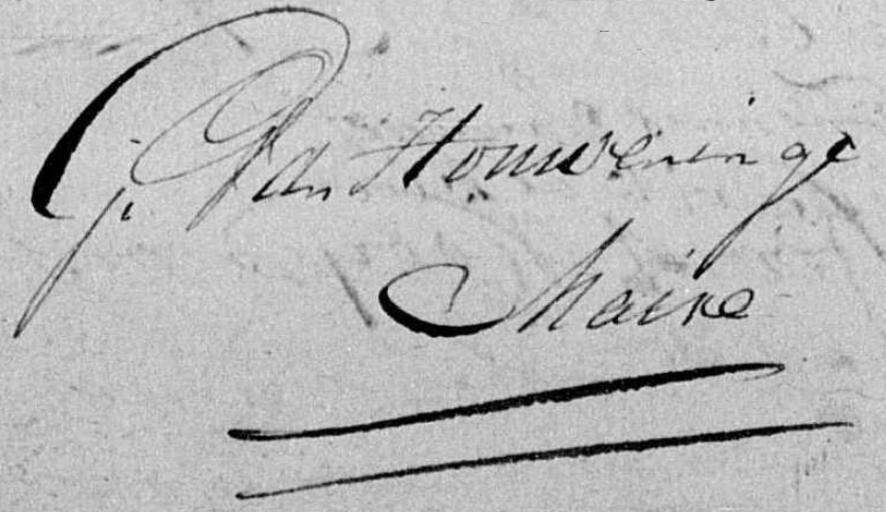 G. Van Houweninge
Maire